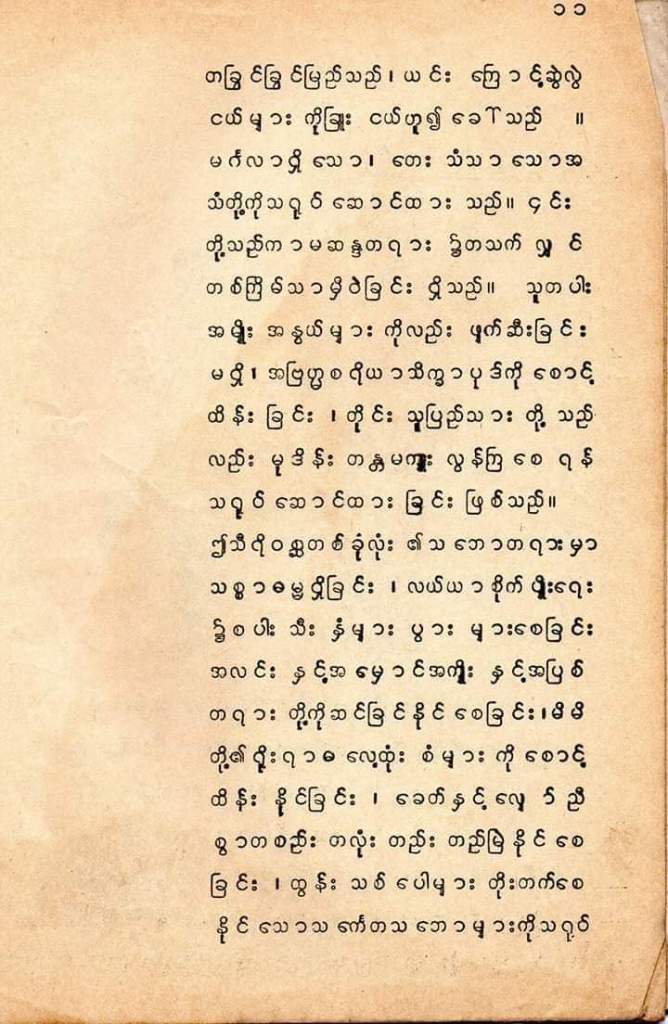 ၁၁
တခြွင်ခြွင်မြည်သည်၊ ယင်း ကြောင့်ဆွဲလွဲ
ငယ်များ ကိုခြူး ငယ်ဟူ၍ ခေါ်သည် ။
မင်္ဂလာရှိ သော၊ တေး သံသာ သောအ
သံတို့ကိုသရုပ် ဆောင်ထား သည်။ ၄င်း
တို့သည်ကာမဆန္ဒတရား ၌တသက် လျှင်
တစ်ကြိမ်သာမှီဝဲခြင်း ရှိသည်။ သူတပါး
အမျိုး အနွယ်များ ကိုလည်း ဖျက်ဆီးခြင်း
မရှိ၊ အဗြဟ္မစရိယာသိက္ခာပုဒ်ကို စောင့်
ထိန်း ခြင်း ၊ တိုင်း သူပြည်သား တို့ သည်
လည်း မုဒိန်း တန္တမကျူး လွန်ကြ စေ ရန်
သရုပ် ဆောင်ထား ခြင်း ဖြစ်သည်။
ဤသီရိဝစ္ဆတစ်ခုံလုံး ၏သဘောတရားမှာ
သစ္စာဓမ္မရှိခြင်း ၊ လယ်ယာစိုက် ပျိုးရေး
၌စပါး သီး နှံများ ပွား များစေခြင်း
အလင်း နှင့်အမှောင်အကျိုး နှင့်အပြစ်
တရား တို့ကိုဆင်ခြင်နိုင် စေခြင်း၊မိမိ
တို့၏ ရိုးရာဓလေ့ထုံး စံများ ကို စောင့်
ထိန်း နိုင်ခြင်း ၊ ခေတ်နှင့်လျော်ညီ
စွာတစည်း တလုံး တည်း တည်မြဲနိုင် စေ
ခြင်း ၊ထွန်း သစ်ပေါများ တိုးတက်စေ
နိုင် သောသင်္ကေတသဘောများကိုသရုပ်